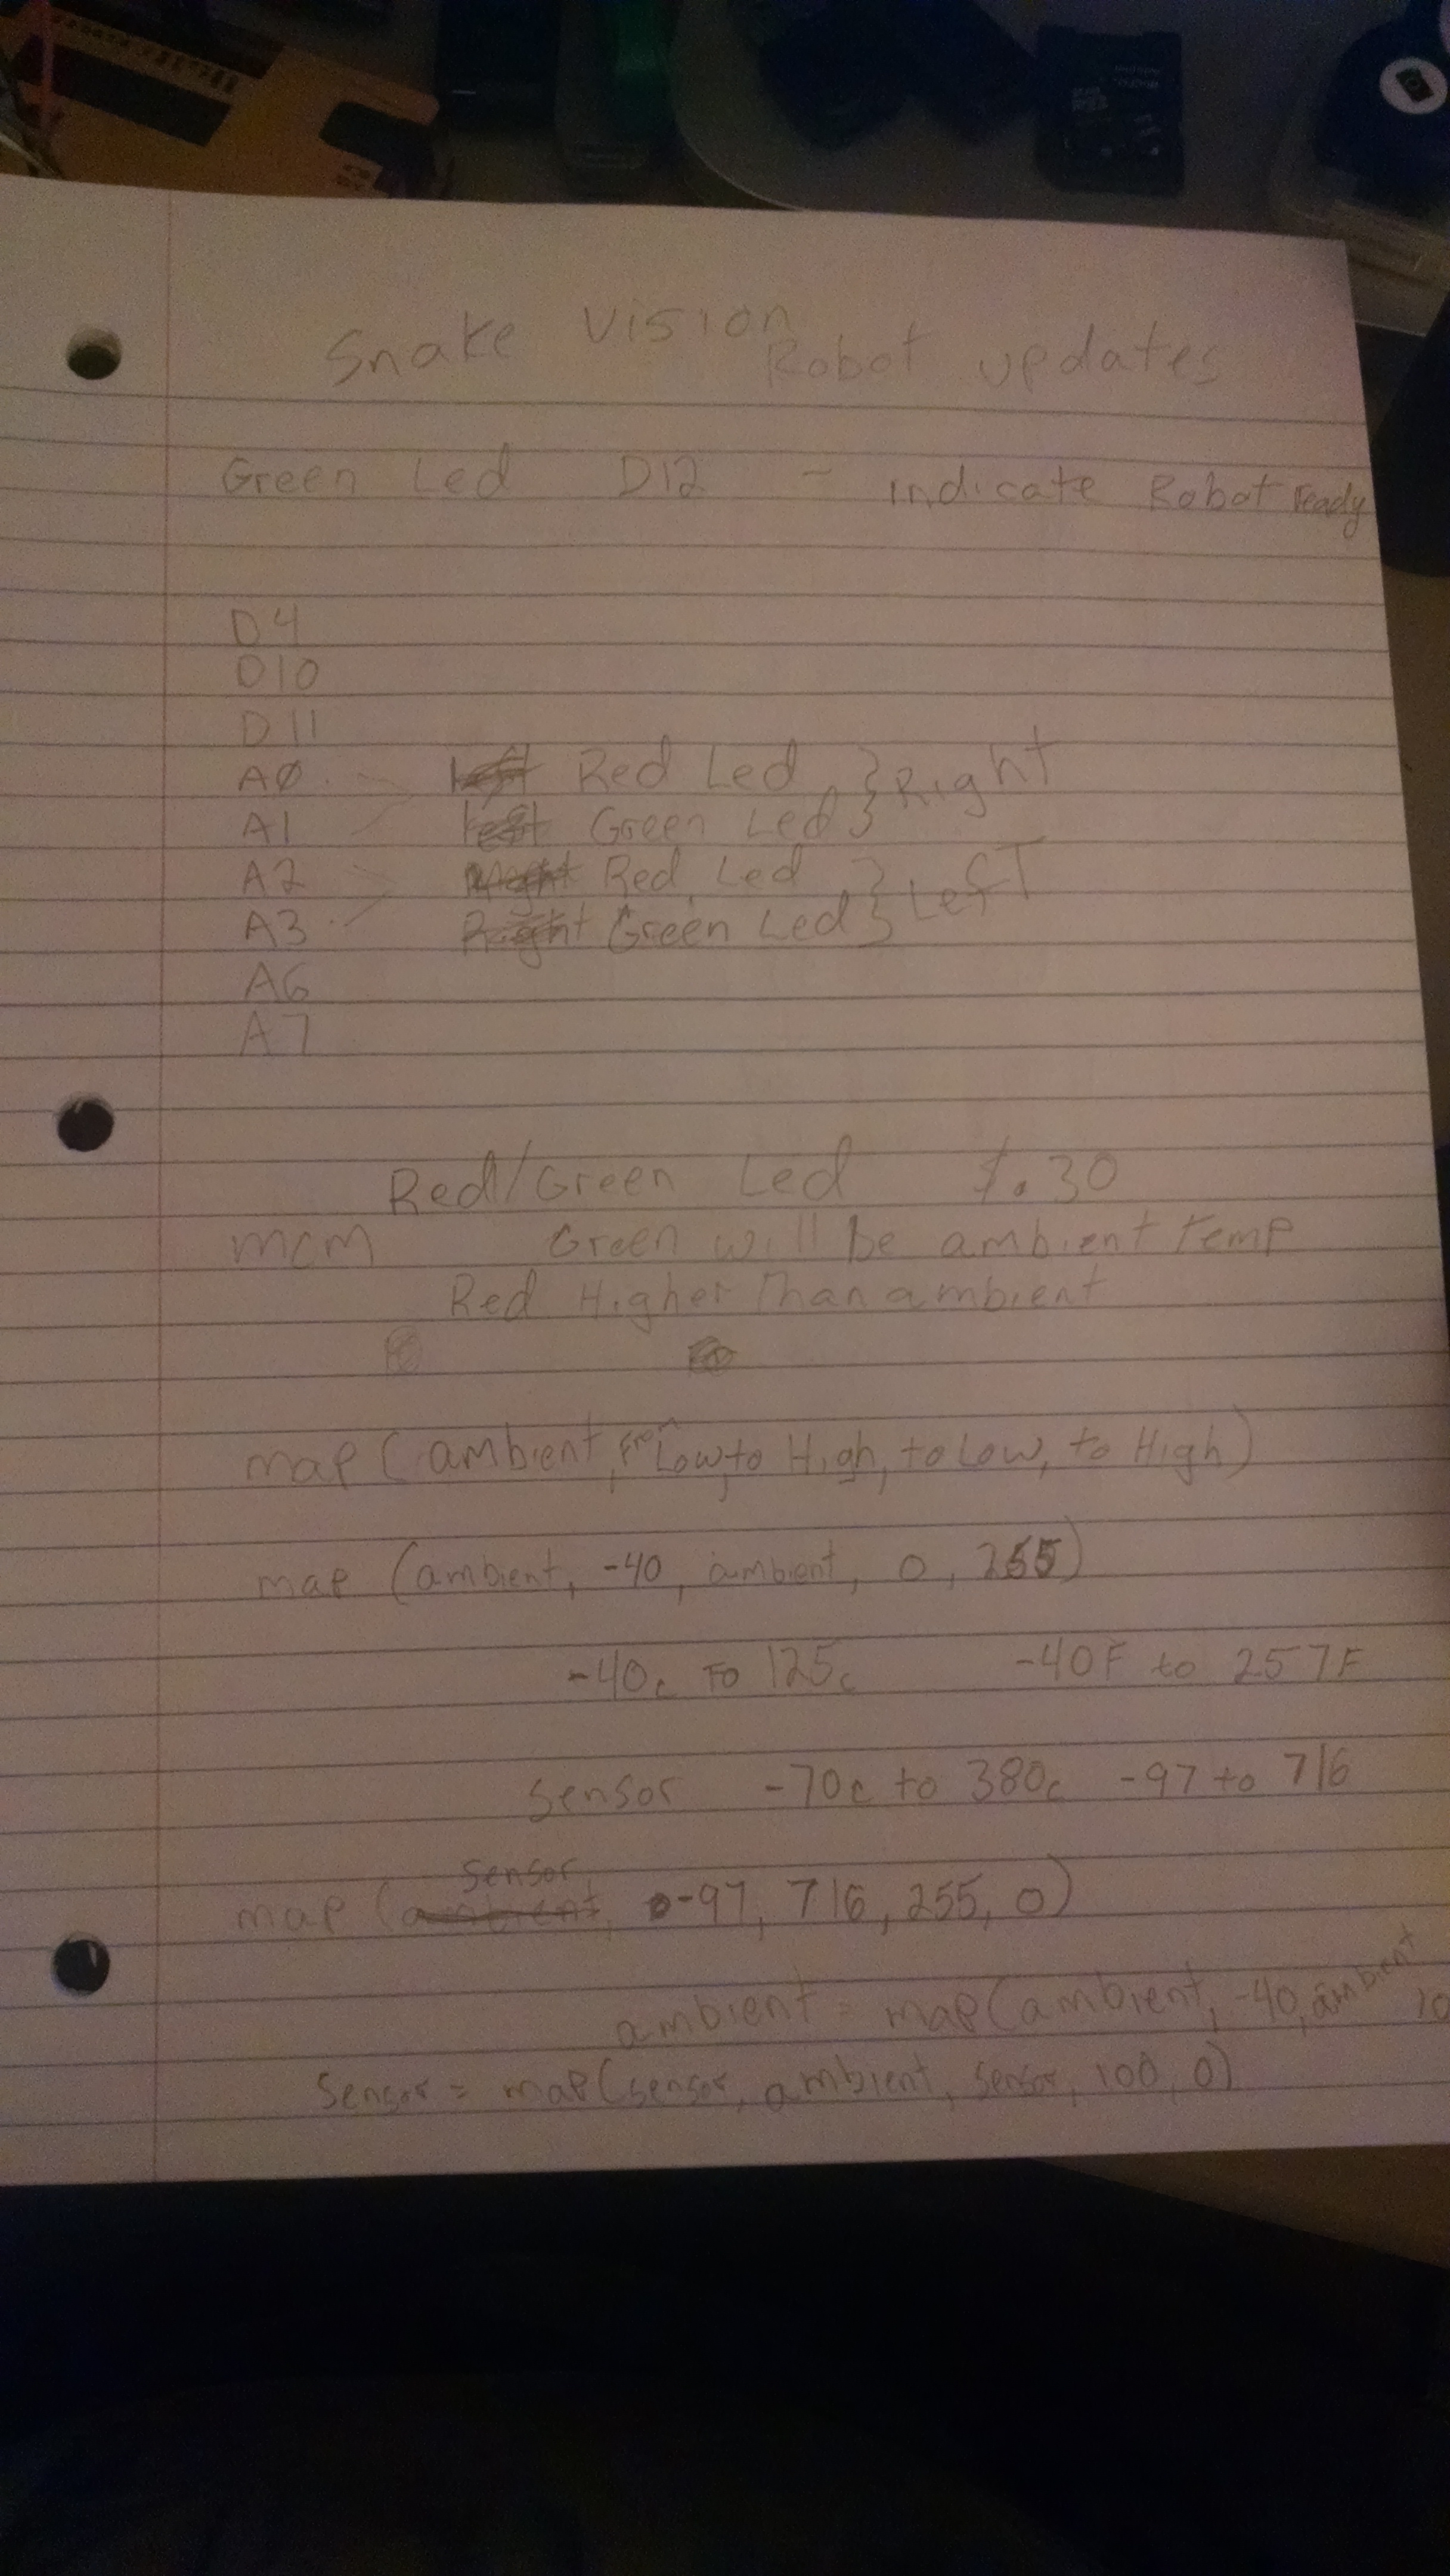 Snake Vision Robot updates
Green Led D12 - indicate Robot ready
D4
D10
D11
AØ Left Red Led } Right
A1 Left Green Led }
A2 Right Red Led } LefT
A3 Right Green Led }
A6
A7
Red/Green Led $.30
mcm Green will be ambient temp
Red Higher Than ambient
map (ambient, From Low, to High, to Low, to High)
map (ambient, -40, ambient, 0, 255)
-40c To 125c -40F to 257F
sensor -70c to 380c -97 to 716
sensor,
map (ambient, -97, 716, 255, 0)
ambient = map(ambient, -40, ambient
Sensor = map(sensor, ambient, sensor, 100, 0)